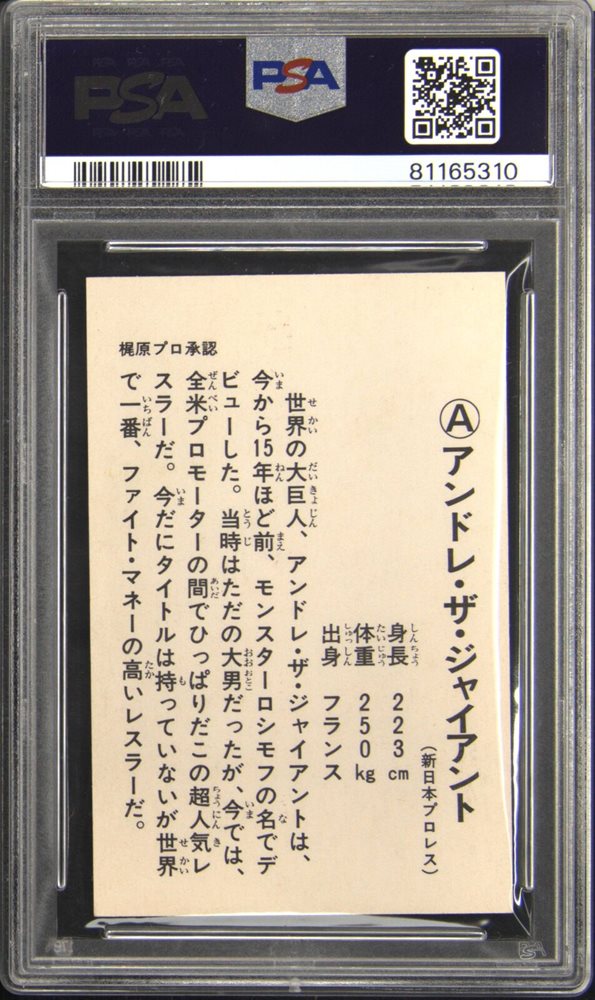 PSA
PSA
81165310
Ⓐアンドレ・ザ・ジャイアント
（新日本プロレス）
身長 223cm
体重 250kg
出身 フランス
世界の大巨人、アンドレ・ザ・ジャイアントは、
今から15年ほど前、モンスターロシモフの名でデ
ビューした。当時はただの大男だったが、今では、
全米プロモーターの間でひっぱりだこの超人気レ
スラーだ。今だにタイトルは持っていないが世界
で一番、ファイト・マネーの高いレスラーだ。
梶原プロ承認